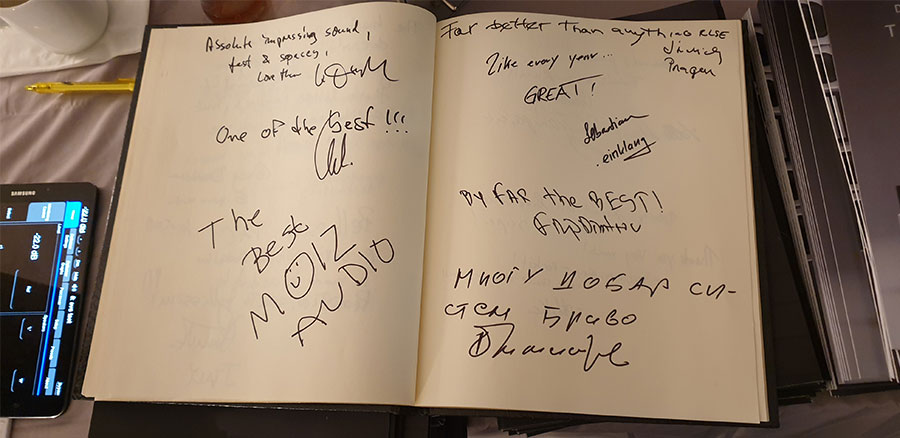 Absolute impressing sound,
fast & spacey,
Love them
One of the best!!!
The
Best
MOIZ
AUDIO
Far better than anything ELSE
Like every year...
GREAT!
Sebastian
einklang
By FAR the BEST!
Многу добар си-
стем Браво
SAMSUNG
-22.0 dB